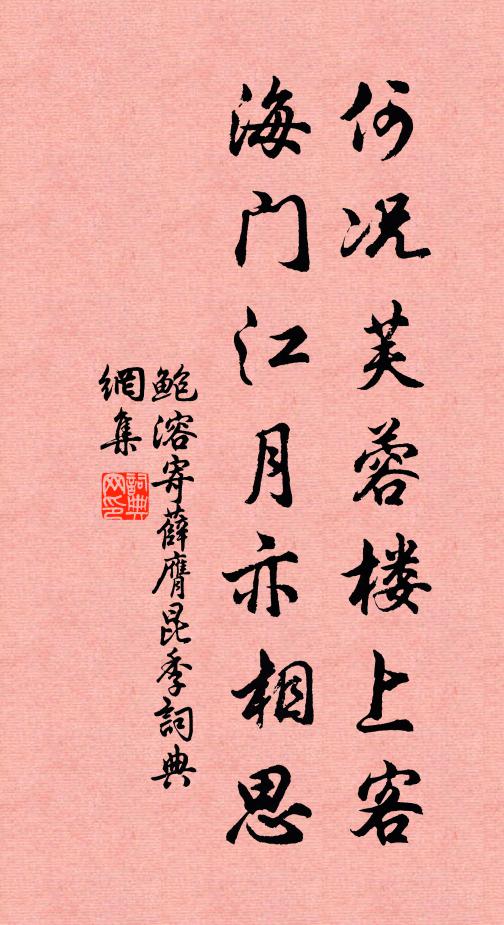 何况芙蓉楼上客
海门江月亦相思
鲍溶寄薛膺昆季詞典
網集
詞典
网印